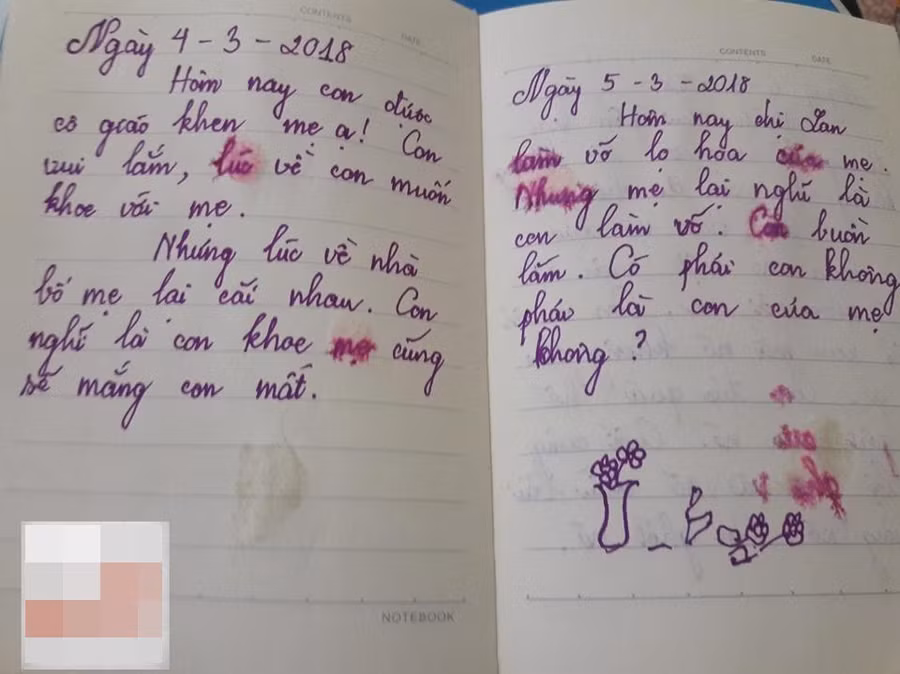 CONTENTS
DATE
Ngày 4-3-2018
Hôm nay con được
cô giáo khen mẹ ạ! Con
vui lắm, lúc về con muốn
khoe với mẹ.
Nhưng lúc về nhà
bố mẹ lại cãi nhau. Con
nghĩ là con khoe mẹ cũng
sẽ mắng con mất.
NOTEBOOK
CONTENTS
DATE
Ngày 5-3-2018
Hôm nay chị Lan
làm vỡ lọ hoa của mẹ.
Nhưng mẹ lại nghĩ là
con làm vỡ. Con buồn
lắm. Có phải con không
phải là con của mẹ
không?